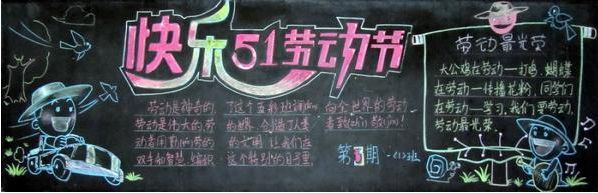 快乐51劳动节
劳动是神奇的,
劳动是伟大的,劳
动者用勤劳的
双手和智慧,编织
了这个五彩班斓的
的世界,创造了人类
的文明,让我们在
这个特别的日子里,
向全世界的劳动
者致以敬意!
第5期 一(1)班
劳动最光荣
大公鸡在劳动——打鸣,蝴蝶
在劳动——传播花粉,同学们
在劳动——学习,我们要劳动,
劳动最光荣。